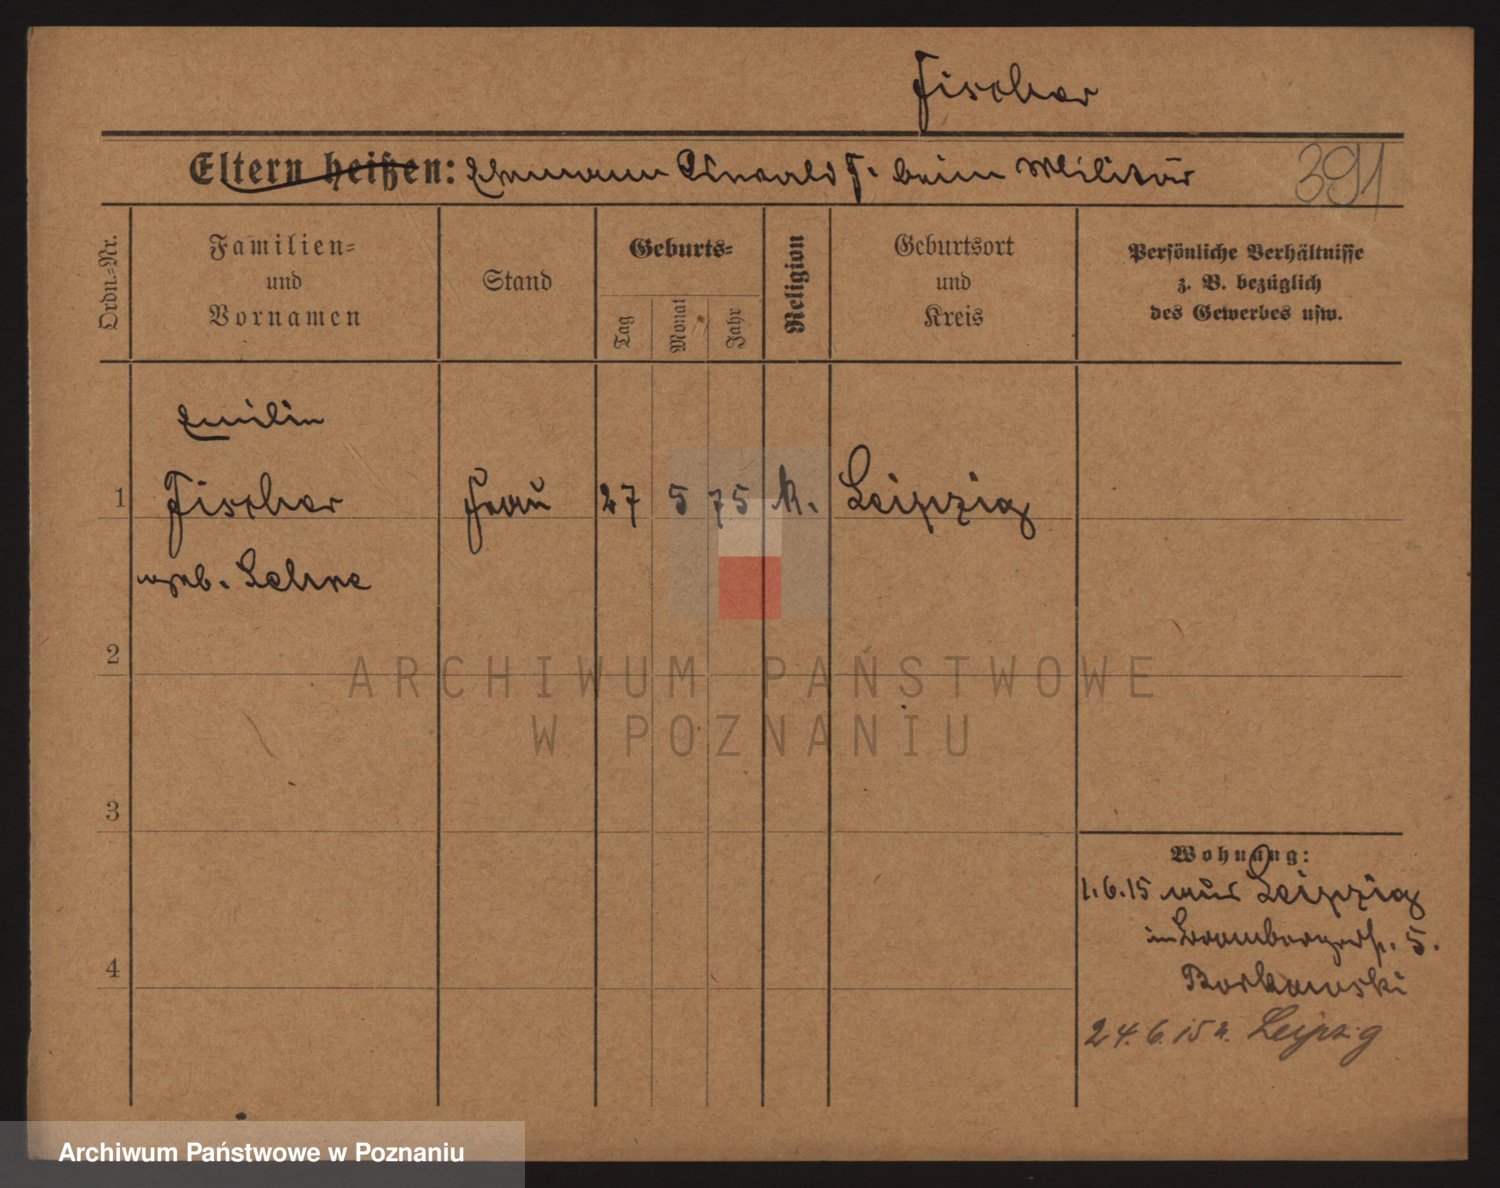 Fischer
391
Eltern heißen: Ehemann Oswald F. beim Militär
Ordn.=Nr.
Familien=
und
Vornamen
Stand
Geburts=
Tag
Monat
Jahr
Religion
Geburtsort
und
Kreis
Persönliche Verhältnisse
z. B. bezüglich
des Gewerbes usw.
Emilie
1 Fischer Frau 27 5 75 k. Leipzig
geb. Lehne
2
3
4
Wohnung:
1.6.15 aus Leipzig
Brombergerstr. 5.
Borkowski
24.6.15 n. Leipzig
ARCHIWUM PAŃSTWOWE
W POZNANIU
Archiwum Państwowe w Poznaniu